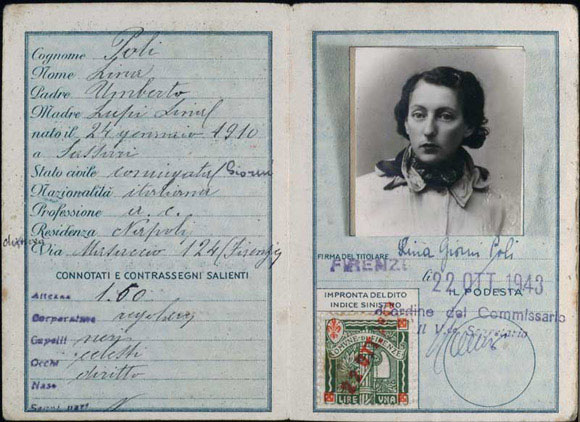 Cognome Poli
Nome Lina
Padre Umberto
Madre Lupi
nato il 24 gennaio 1910
a Sassari
Stato civile coniugata/Giorni
Nazionalità italiana
Professione a. c.
Residenza Napoli
Via Masaccio 124/Firenze
CONNOTATI E CONTRASSEGNI SALIENTI
Altezza 1.60
Corporatura regolare
Capelli neri
Occhi celesti
Naso diritto
FIRMA DEL TITOLARE Lina Giorni Poli
FIRENZE
22 OTT 1943
IL PODESTÀ
d'ordine del Commissario
Il V. Segretario
IMPRONTA DEL DITO
INDICE SINISTRO
COMUNE DI FIRENZE
22 OTT
LIRE VNA